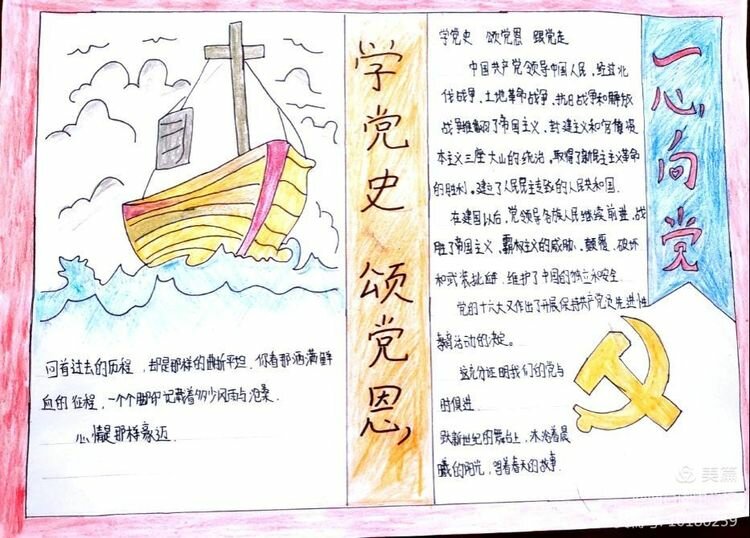 学党史 颂党恩
一心向党
回首过去的历程，却是那样的曲折平坦.你看那洒满鲜
血的征程，一个个脚印记载着多少风雨与沧桑.
心情是那样豪迈.
学党史 颂党恩 跟党走
中国共产党领导中国人民，经过北
伐战争，土地革命战争，抗日战争和解放
战争推翻了帝国主义，封建主义和官僚资
本主义三座大山的统治，取得了新民主主义革命
的胜利。建立了人民民主专政的人民共和国.
在建国以后，党领导各族人民继续前进，战
胜了帝国主义，霸权主义的威胁，颠覆，破坏
和武装挑衅，维护了中国的独立和安全
党的十六大又作出了开展保持共产党员先进性
教育活动的决定。
这充分证明我们的党与
时俱进
新世纪的舞台上，沐浴着晨
曦的阳光，着春天的故事.
美篇